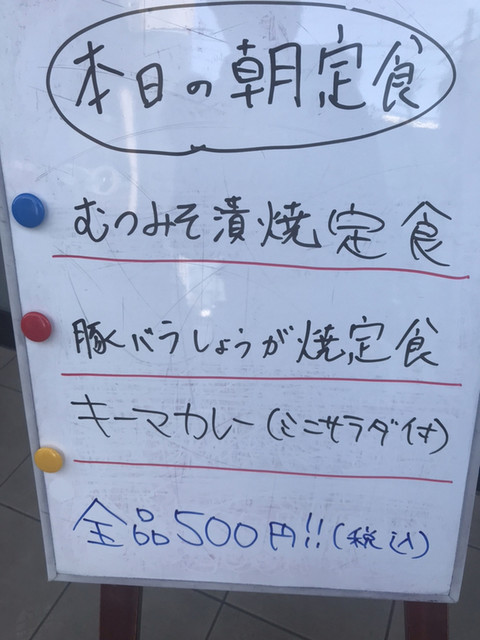 本日の朝定食
むつみそ漬焼定食
豚バラしょうが焼定食
キーマカレー(ミニサラダ付)
全品500円!!(税込)